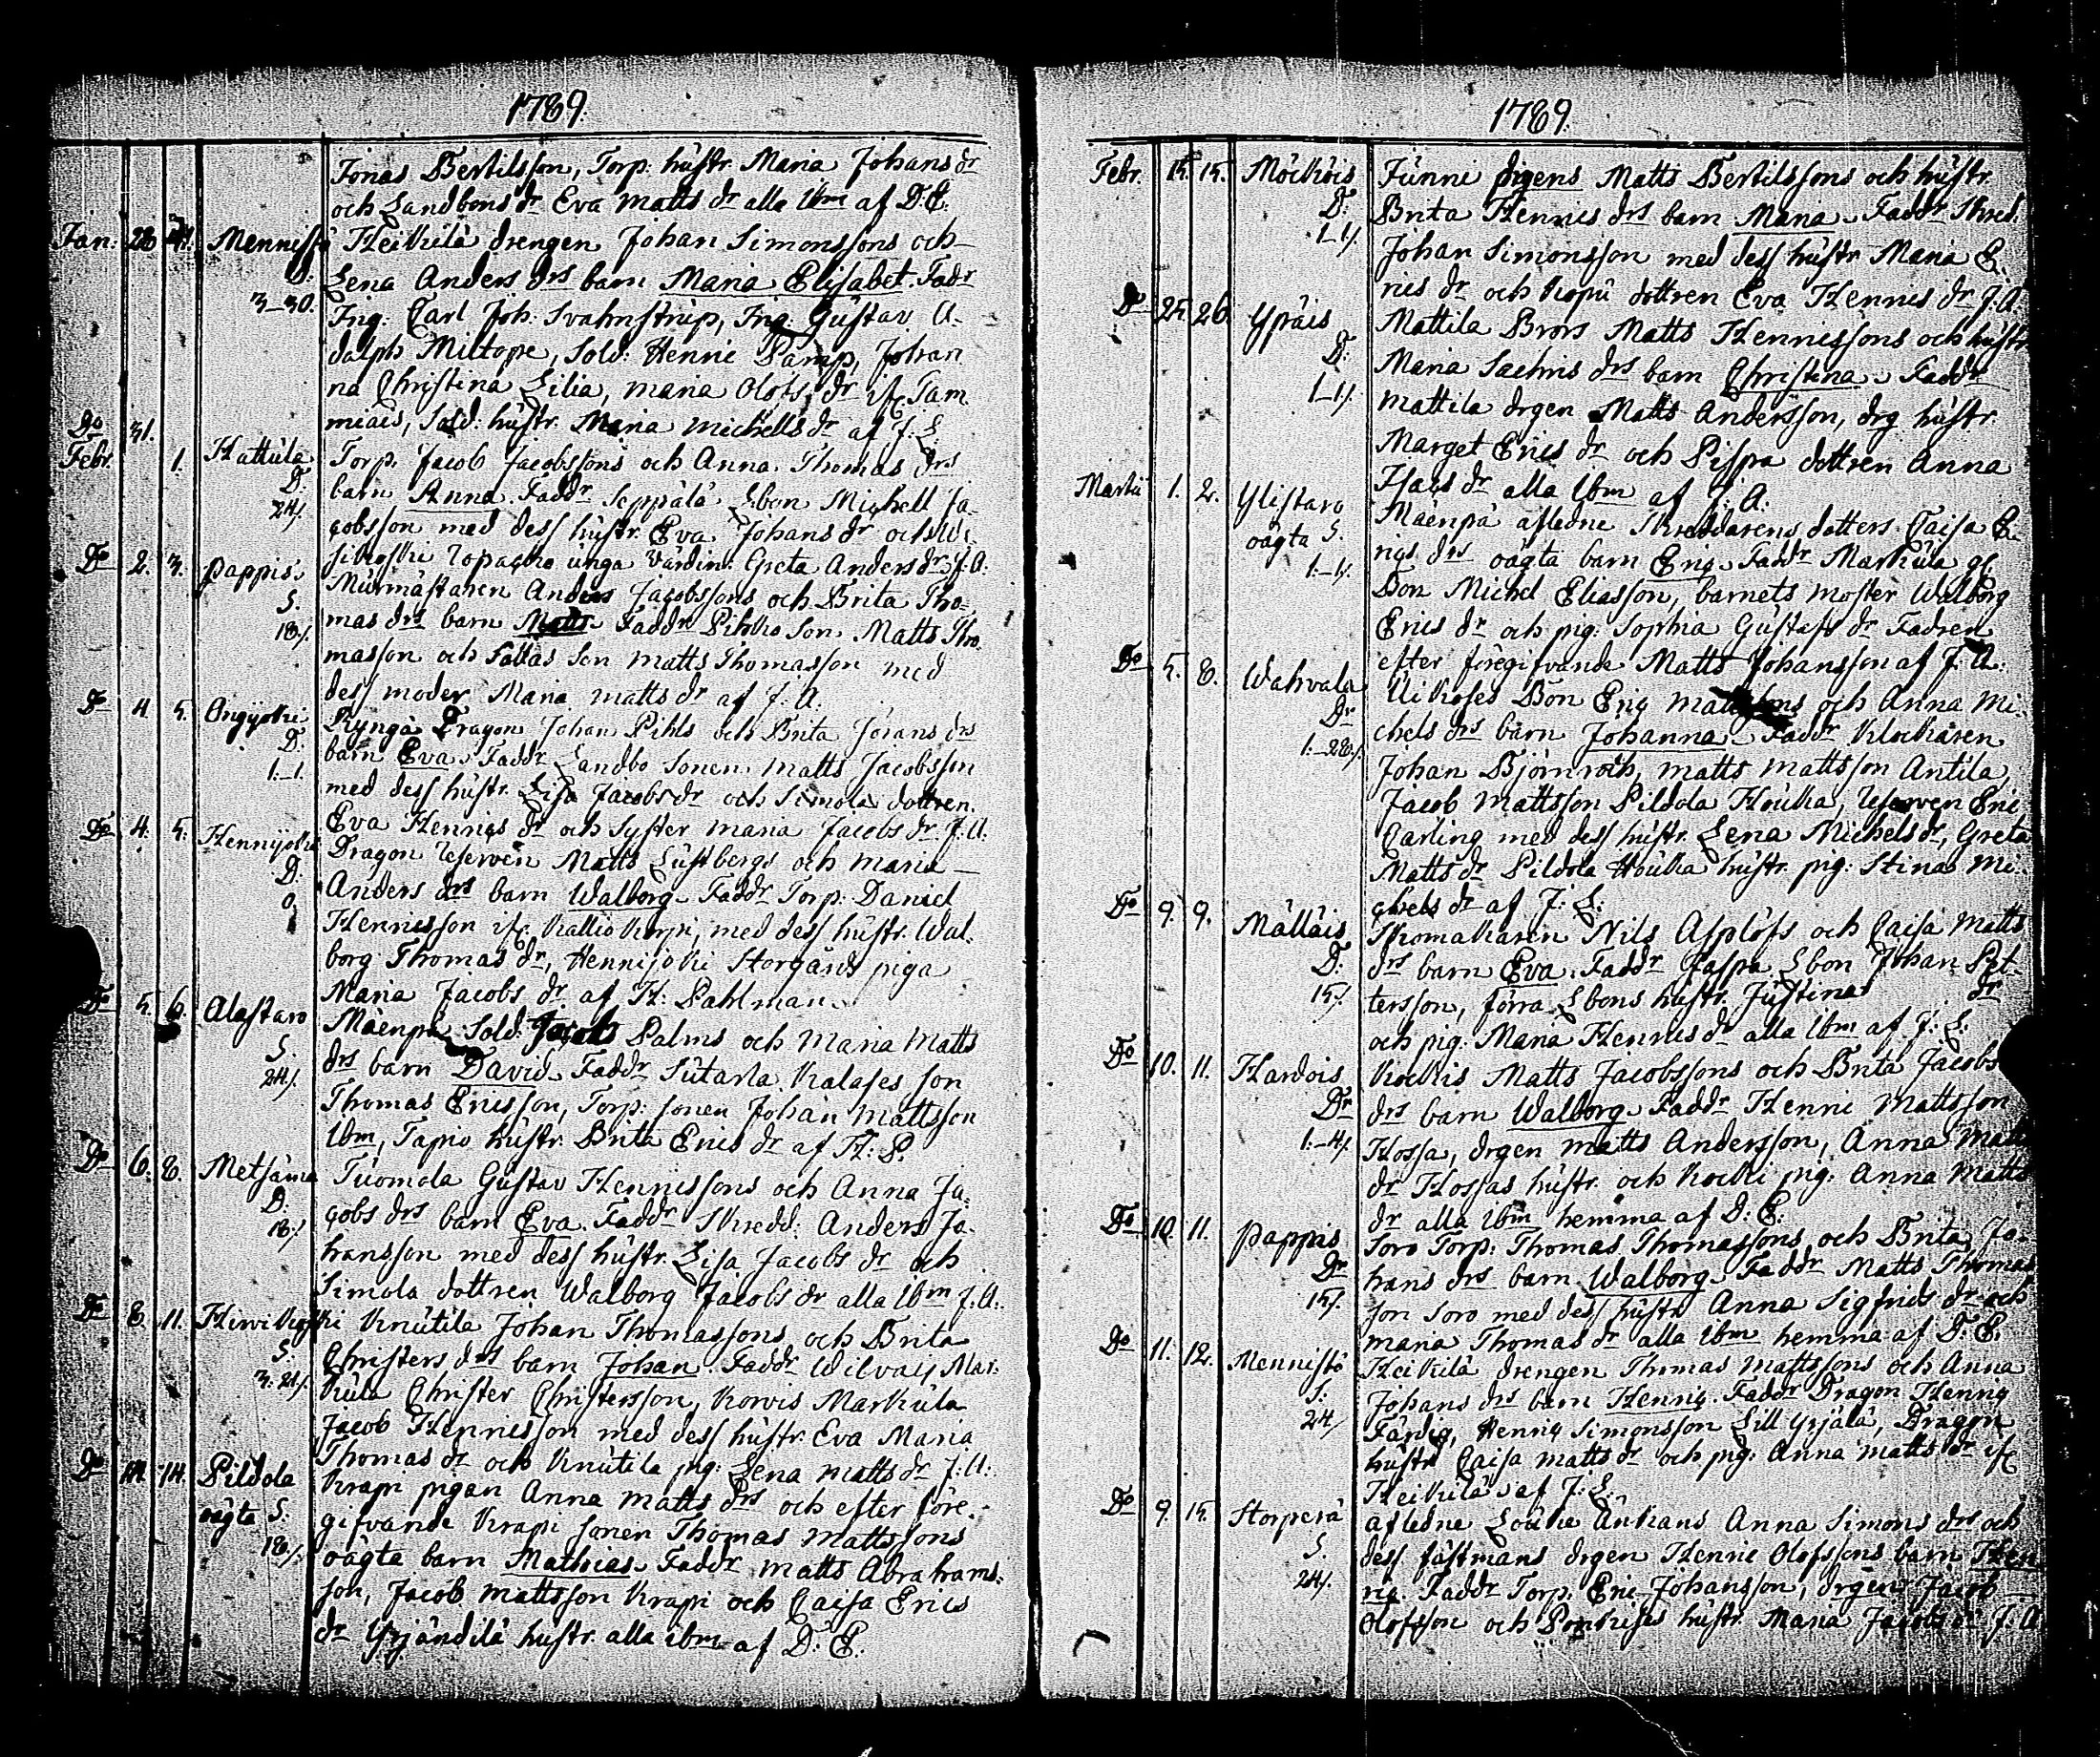 1789.
Jonas Bertilsson, Torp: hustr. Maria Johans dr
och Landbons dr Eva Matts dr alla ibm af D: E.
Jan: 28 31. Mennistö Heikilä drengen Johan Simonssons och
D: Lena Anders drs barn Maria Elisabet. Fadr
3–30. Ing. Carl Joh: Svahnström, Ing. Gustav A-
dolph Miltope, Sold: Henric Ramp, Johan
na Christina Lilia, Maria Olofs dr if. Tam
miais, Sold: hustr. Maria Michells dr af J. L.
Do 31.
Febr. 1. Hattula Torp. Jacob Jacobssons och Anna Thomas drs
D. barn Anna. Faddr Seppälä Lbon Michell Ja-
24/. cobsson med dess hustr. Eva Johans dr och
Do 2. 3. Pappis unga värdin: Greta Anders dr J. A.
Murmästaren Anders Jacobssons och Brita Tho-
S. mas drs barn Matts. Faddr Pihko Son Matts Tho-
18/. masson och Son Matts Thomasson med
dess moder Maria Matts dr af J. A.
Do 4. 5. Orijpähi Kynga Dragon Johan Pihls och Brita Jörans drs
D. barn Eva. Faddr Landbo Sonen Matts Jacobsson
1.–1. med dess hustr. Lisa Jacobs dr och Simola dottren
Eva Henrics dr och Syster Maria Jacobs dr J. A.
Do 4. 5. Hennijoki Dragon Reserven Matts Lustbergs och Maria
D. Anders drs barn Walborg. Faddr Torp. Daniel
Henricsson if. Kallio Korpi, med dess hustr. Wal-
borg Thomas dr, Hennijoki Storgårds piga
Maria Jacobs dr af H: Pahlman.
Do 5. 6. Alastaro Mäenpä Sold: Jacob Palms och Maria Matts
S. drs barn David. Faddr Sutarla Kalases son
24/. Thomas Ericsson, Torp: sonen Johan Mattsson
ibm, Tapio hustr. Brita Erics dr af H: P.
Do 6. 8. Metsämä Tuomola Gustav Henricssons och Anna Ja-
D. cobs drs barn Eva. Faddr Skredd: Anders Jo-
18/. hansson med dess hustr. Lisa Jacobs dr och
Simola dottren Walborg Jacobs dr alla ibm J. A.
Do 8. 11. Hirvikoski Knutila Johan Thomassons och Brita
S. Christers drs barn Johan. Faddr Wilvaij Mar-
3. 21/. kula Christer Christersson, Korvis Markula
Jacob Henricsson med dess hustr. Eva Maria
Thomas dr och Knutila pig: Lena Matts dr J: A:
Do 14. 14. Pildola Krapi pigan Anna Matts drs och efter före-
oägta S. gifvande Krapi sonen Thomas Mattssons
18/. oägta barn Mathias. Faddr Matts Abrahams-
son, Jacob Mattsson Krapi och Caisa Erics
dr Yrjändilä hustr. alla ibm af D: E.
1789.
Febr. 15. 15. Möckois Junni drgens Matts Bertilssons och hustr.
D: Brita Henrics drs barn Maria. Faddr Skred.
1–4/. Johan Simonsson med dess hustr Maria E-
rics dr och Kopu dottren Eva Henrics dr J. A.
Do 25. 26. Ypäis Mattila Brors Matts Henricssons och hustr
D: Maria Sachris drs barn Christina. Faddr
1–1/. Mattila drgen Matts Andersson, drg hustr.
Marget Erics dr och Pispa dottren Anna
Isacs dr alla ibm af J: A.
Martii 1. 2. Ylistaro Mäenpä afledne Skreddarens dotters Caisa E-
oägta S. rics drs oägta barn Eric. Faddr Markula gl.
1.–4/. Bon Michel Eliasson, barnets moster Walborg
Erics dr och pig: Sophia Gustafs dr Fadren
efter föregifvande Matts Johansson af J. A.
Do 5. 8. Wahvala Uikoses Bon Eric Mattssons och Anna Mi-
Dr chels drs barn Johanna. Faddr Klockaren
1.–28/. Johan Björnroth, Matts Mattsson Antila,
Jacob Mattsson Pildola Houka, Reserven Eric
Carling med dess hustr. Lena Michels dr, Greta
Matts dr Pildola Houka hustr. pig: Stina Mi-
chels dr af J: L:
Do 9. 9. Mälläis Skomakaren Nils Asplöfs och Caisa Matts
D: drs barn Eva. Faddr Jaspa Lbon Johan Pet-
15/. tersson, förra Lbons hustr. Justina dr
och pig. Maria Henrics dr alla ibm af J: L:
Do 10. 11. Hardois Kockis Matts Jacobssons och Brita Jacobs
Dr drs barn Walborg. Faddr Henric Mattsson
1.–4/. Hossa, drgen Matts Andersson, Anna Matts
dr Hossas hustr. och Kocki pig: Anna Matts
dr alla ibm hemma af D: E:
Do 10. 11. Pappis Soro Torp: Thomas Thomassons och Brita Jo-
Dr hans drs barn Walborg. Faddr Matts Thomas
15/. son Soro med dess hustr Anna Sigfrids dr och
Maria Thomas dr alla ibm hemma af D: E.
Do 11. 12. Mennistö Heikilä drengen Thomas Mattssons och Anna
S: Johans drs barn Henric. Faddr Dragon Henric
24/. Färdig, Henric Simonsson Lill Yrjälä, Dragon
hustr Caisa Matts dr och pig. Anna Matts dr if.
Heikilä af J: L:
Do 9. 15. Storperä afledne Loukie Änkans Anna Simons drs och
S. dess fästmans drgen Henric Olofssons barn Hen
24/. ric. Faddr Torp. Eric Johansson, drgen Jacob
Olofsson och hustr. Maria Jacobs dr J. A.